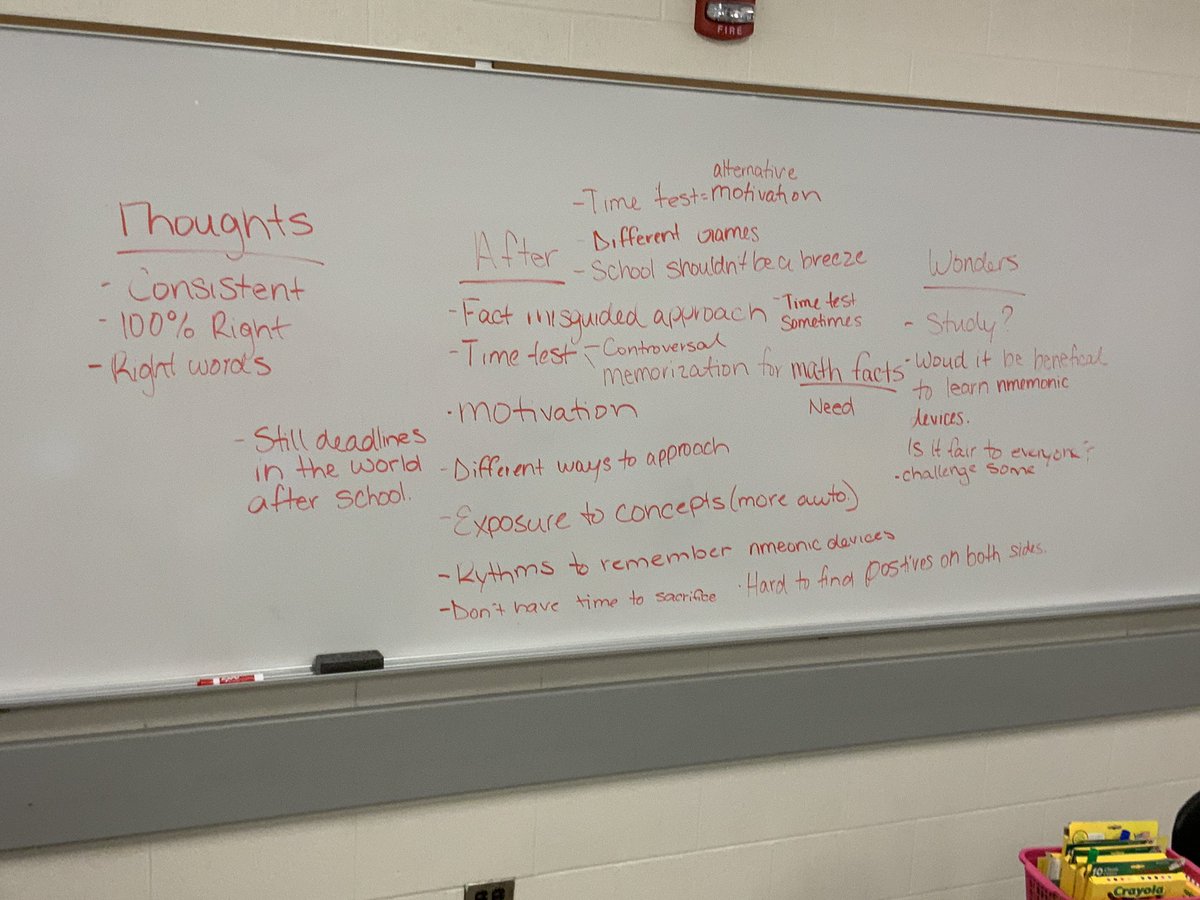 FIRE
Thoughts
- Consistent
- 100% Right
- Right words
- Still deadlines
in the world
after school.
After
alternative
- Time test = motivation
- Different Games
- School shouldn't be a breeze
- Fact misguided approach
- Time test
Sometimes
- Time test - Controversal
memorization for math facts
Need
· motivation
- Different ways to approach
- Exposure to concepts (more auto.)
- Rythms to remember nmeonic devices
- Don't have time to sacrifice
· Hard to find postives on both sides.
Wonders
- Study?
- Woud it be benefical
to learn nmemonic
devices.
Is it fair to everyone?
· challenge some
10
Crayola